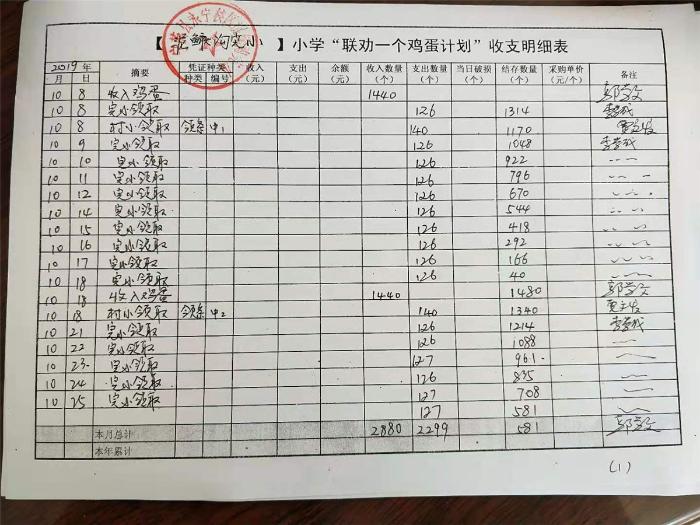 【 完小 】小学“联劝一个鸡蛋计划”收支明细表
2019年 摘要 凭证种类 收入（元） 支出（元） 余额（元） 收入数量（个） 支出数量（个） 当日破损（个） 结存数量（个） 采购单价（元/个） 备注
月 日 种类 编号
10 8 收入鸡蛋 1440
10 8 完小领取 126 1314
10 8 村小领取 领条 中1 140 1170
10 9 完小领取 126 1048
10 10 完小领取 126 922
10 11 完小领取 126 796
10 12 完小领取 126 670
10 14 完小领取 126 544
10 15 完小领取 126 418
10 16 完小领取 126 292
10 17 完小领取 126 166
10 18 完小领取 126 40
10 18 收入鸡蛋 1440 1480
10 18 村小领取 领条 中2 140 1340
10 21 完小领取 126 1214
10 22 完小领取 126 1088
10 23 完小领取 127 961
10 24 完小领取 126 835
10 25 完小领取 127 708
127 581
本月总计 2880 2299 581
本年累计
(1)